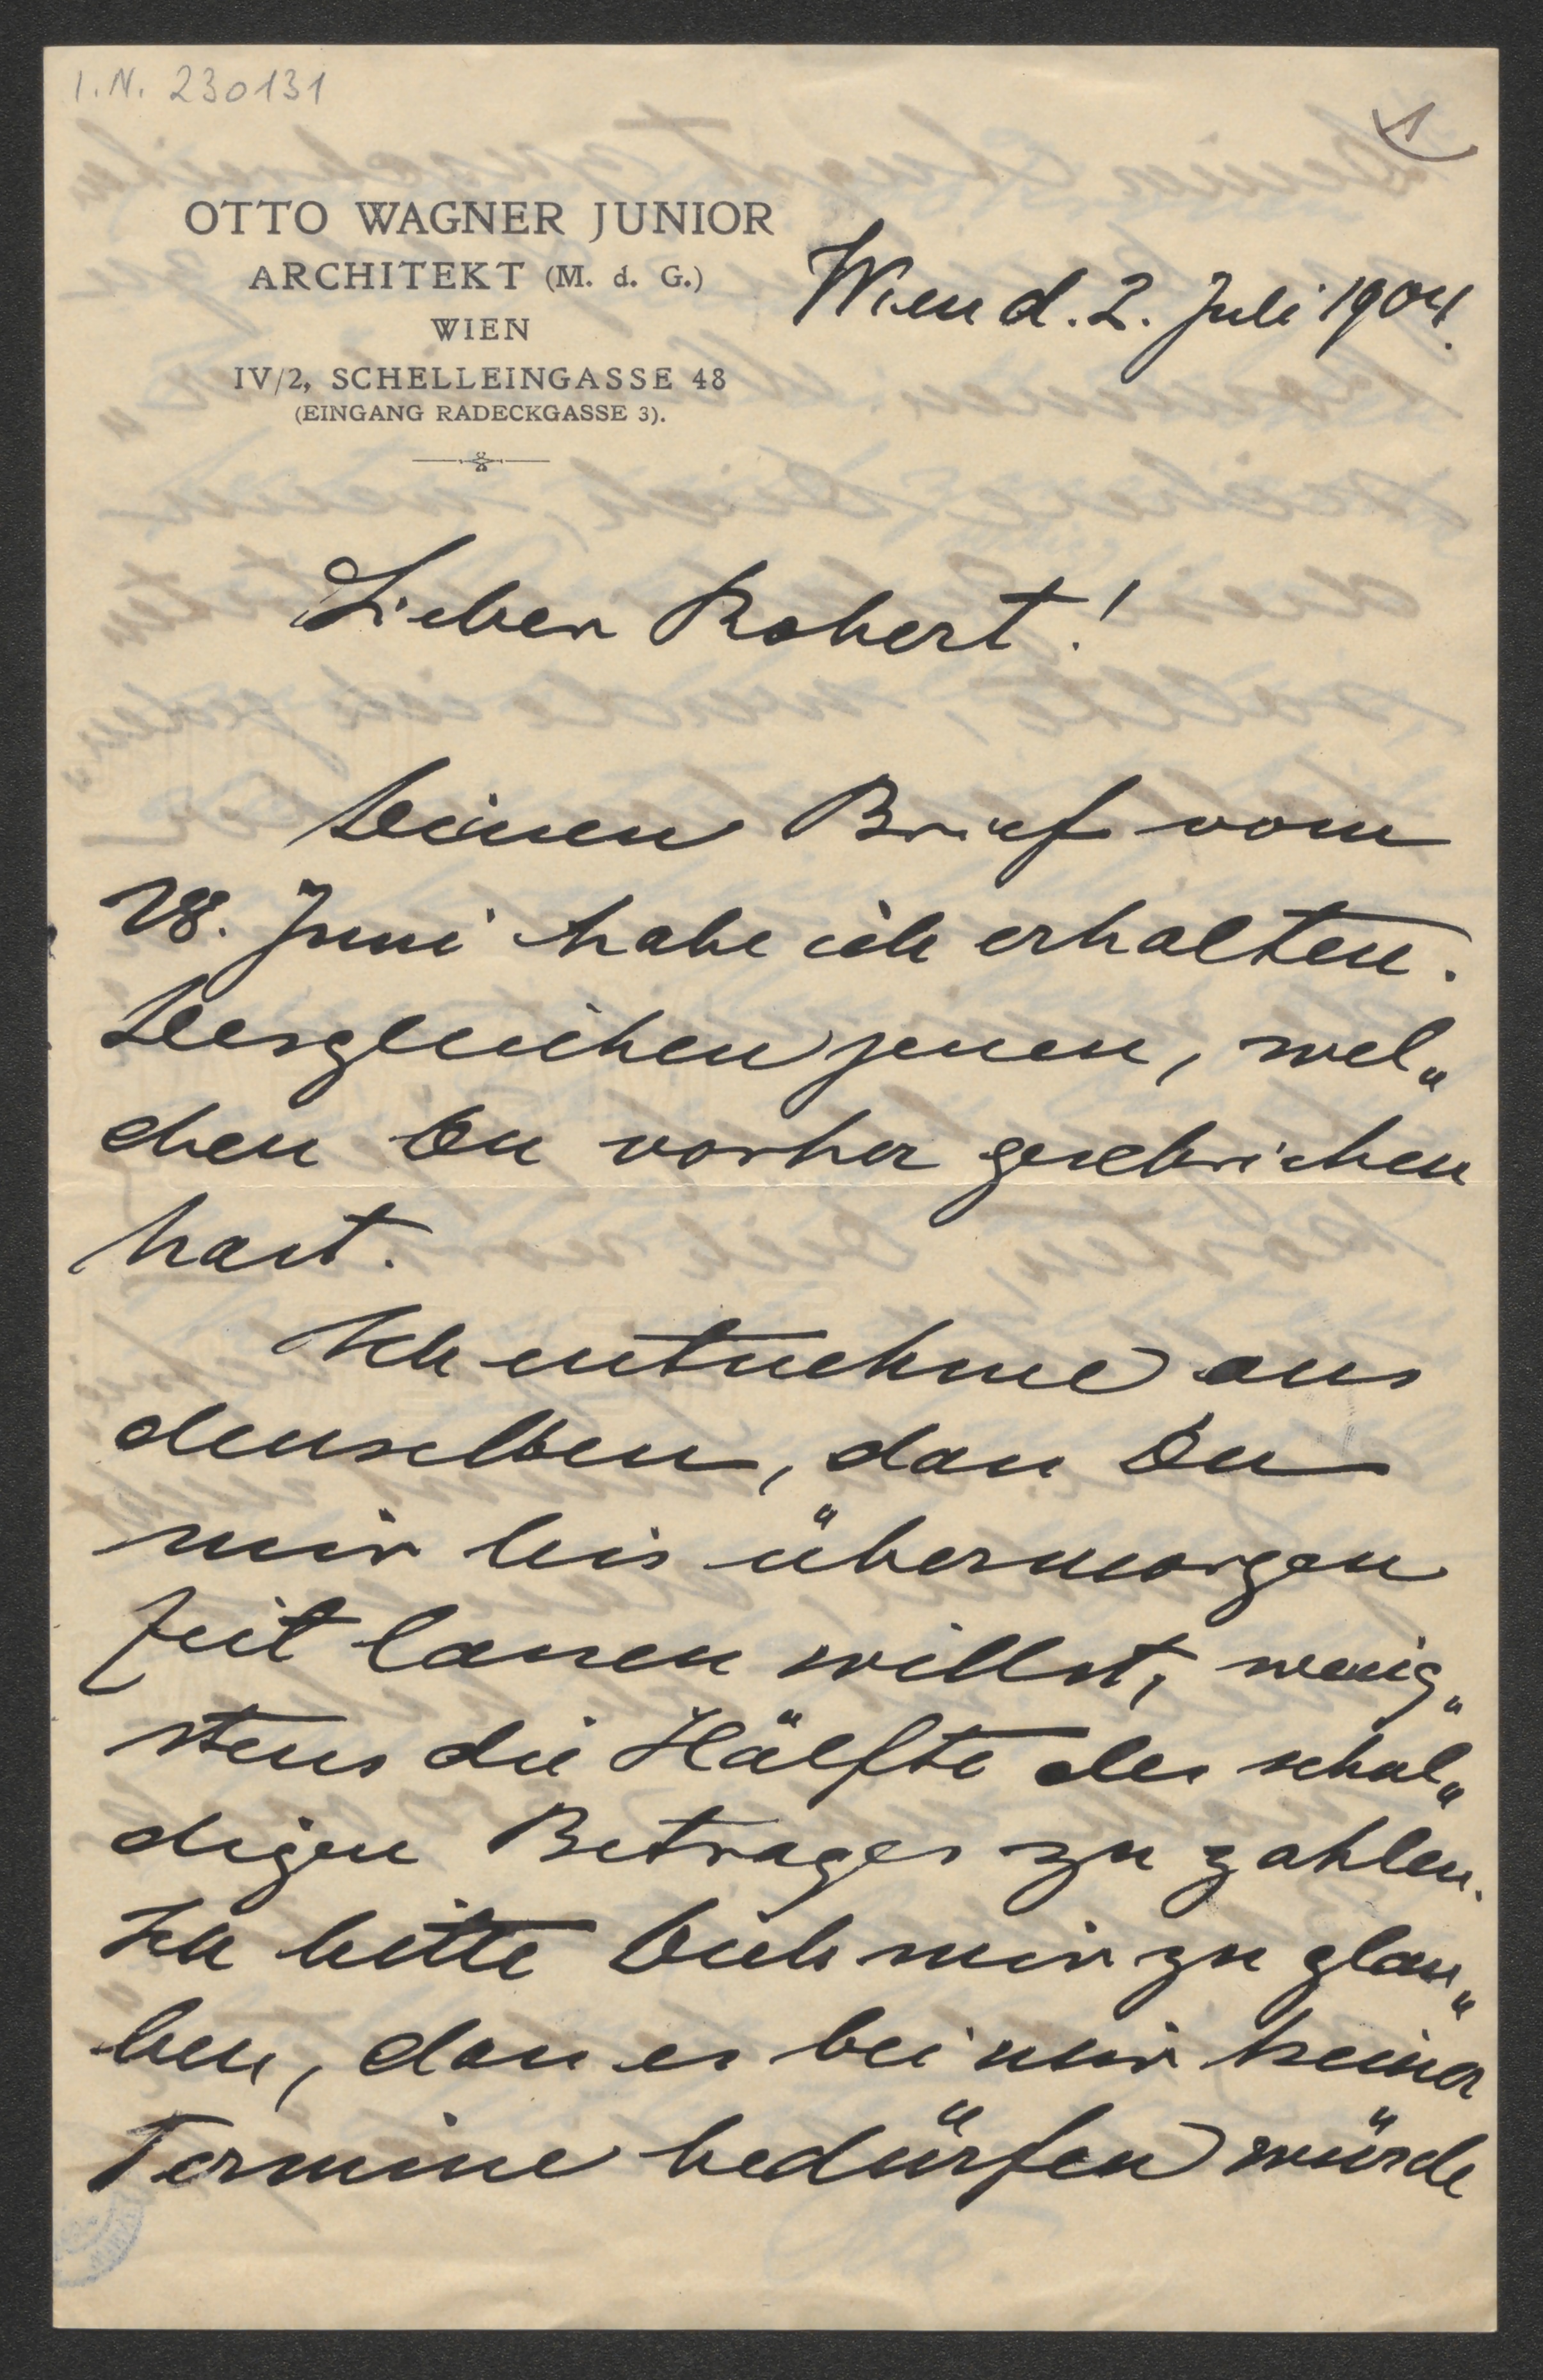 I.N. 230131
1
OTTO WAGNER JUNIOR
ARCHITEKT (M. d. G.)
WIEN
IV/2, SCHELLEINGASSE 48
(EINGANG RADECKGASSE 3).
Wien d. 2. Juli 1904.
Lieber Robert!
Deinen Brief vom
28. Juni habe ich erhalten.
Desgleichen jenen, wel„
chen Du vorher geschrieben
hast.
Ich entnehme aus
denselben, dass Du
mir bis übermorgen
Zeit lassen willst, wenig„
stens die Hälfte des schul„
digen Betrages zu zahlen.
Ich bitte Dich mir zu glau„
ben, dass es bei mir keiner
Termine bedürfen würde